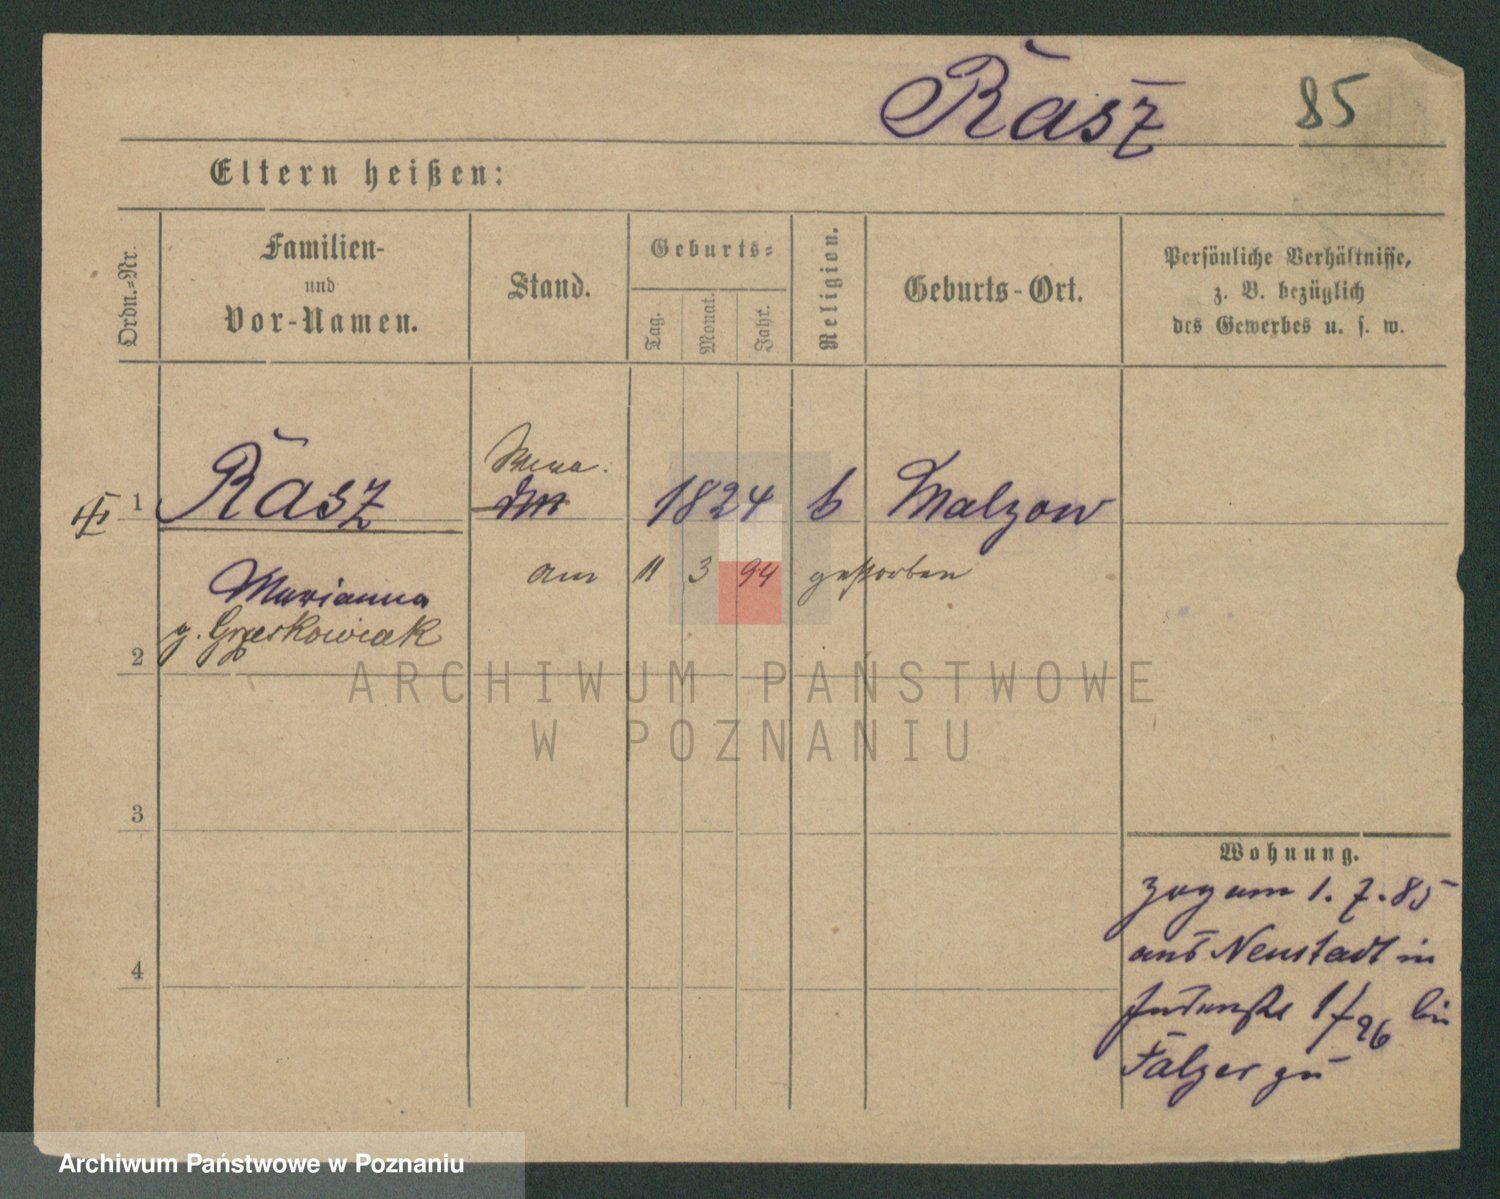 Rasz 85
Eltern heißen:
Ordn.-Nr. Familien- und Vor-Namen. Stand. Geburts- Tag. Monat. Jahr. Religion. Geburts-Ort. Persönliche Verhältnisse, z. B. bezüglich des Gewerbes u. s. w.
1 Rasz 1824 Malzow
am 11 3 94 gestorben
Marianna
g. Grzeskowiak
2
ARCHIWUM PAŃSTWOWE
W POZNANIU
3
Wohnung.
zog am 1. 7. 85
aus Neustadt in
bei
4
Falzer zu
Archiwum Państwowe w Poznaniu